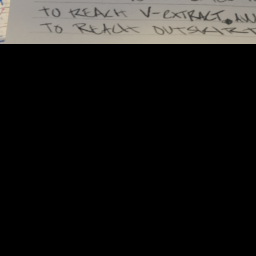 TO REACH V-EXTRACT.
TO REACH OUTSKIRT